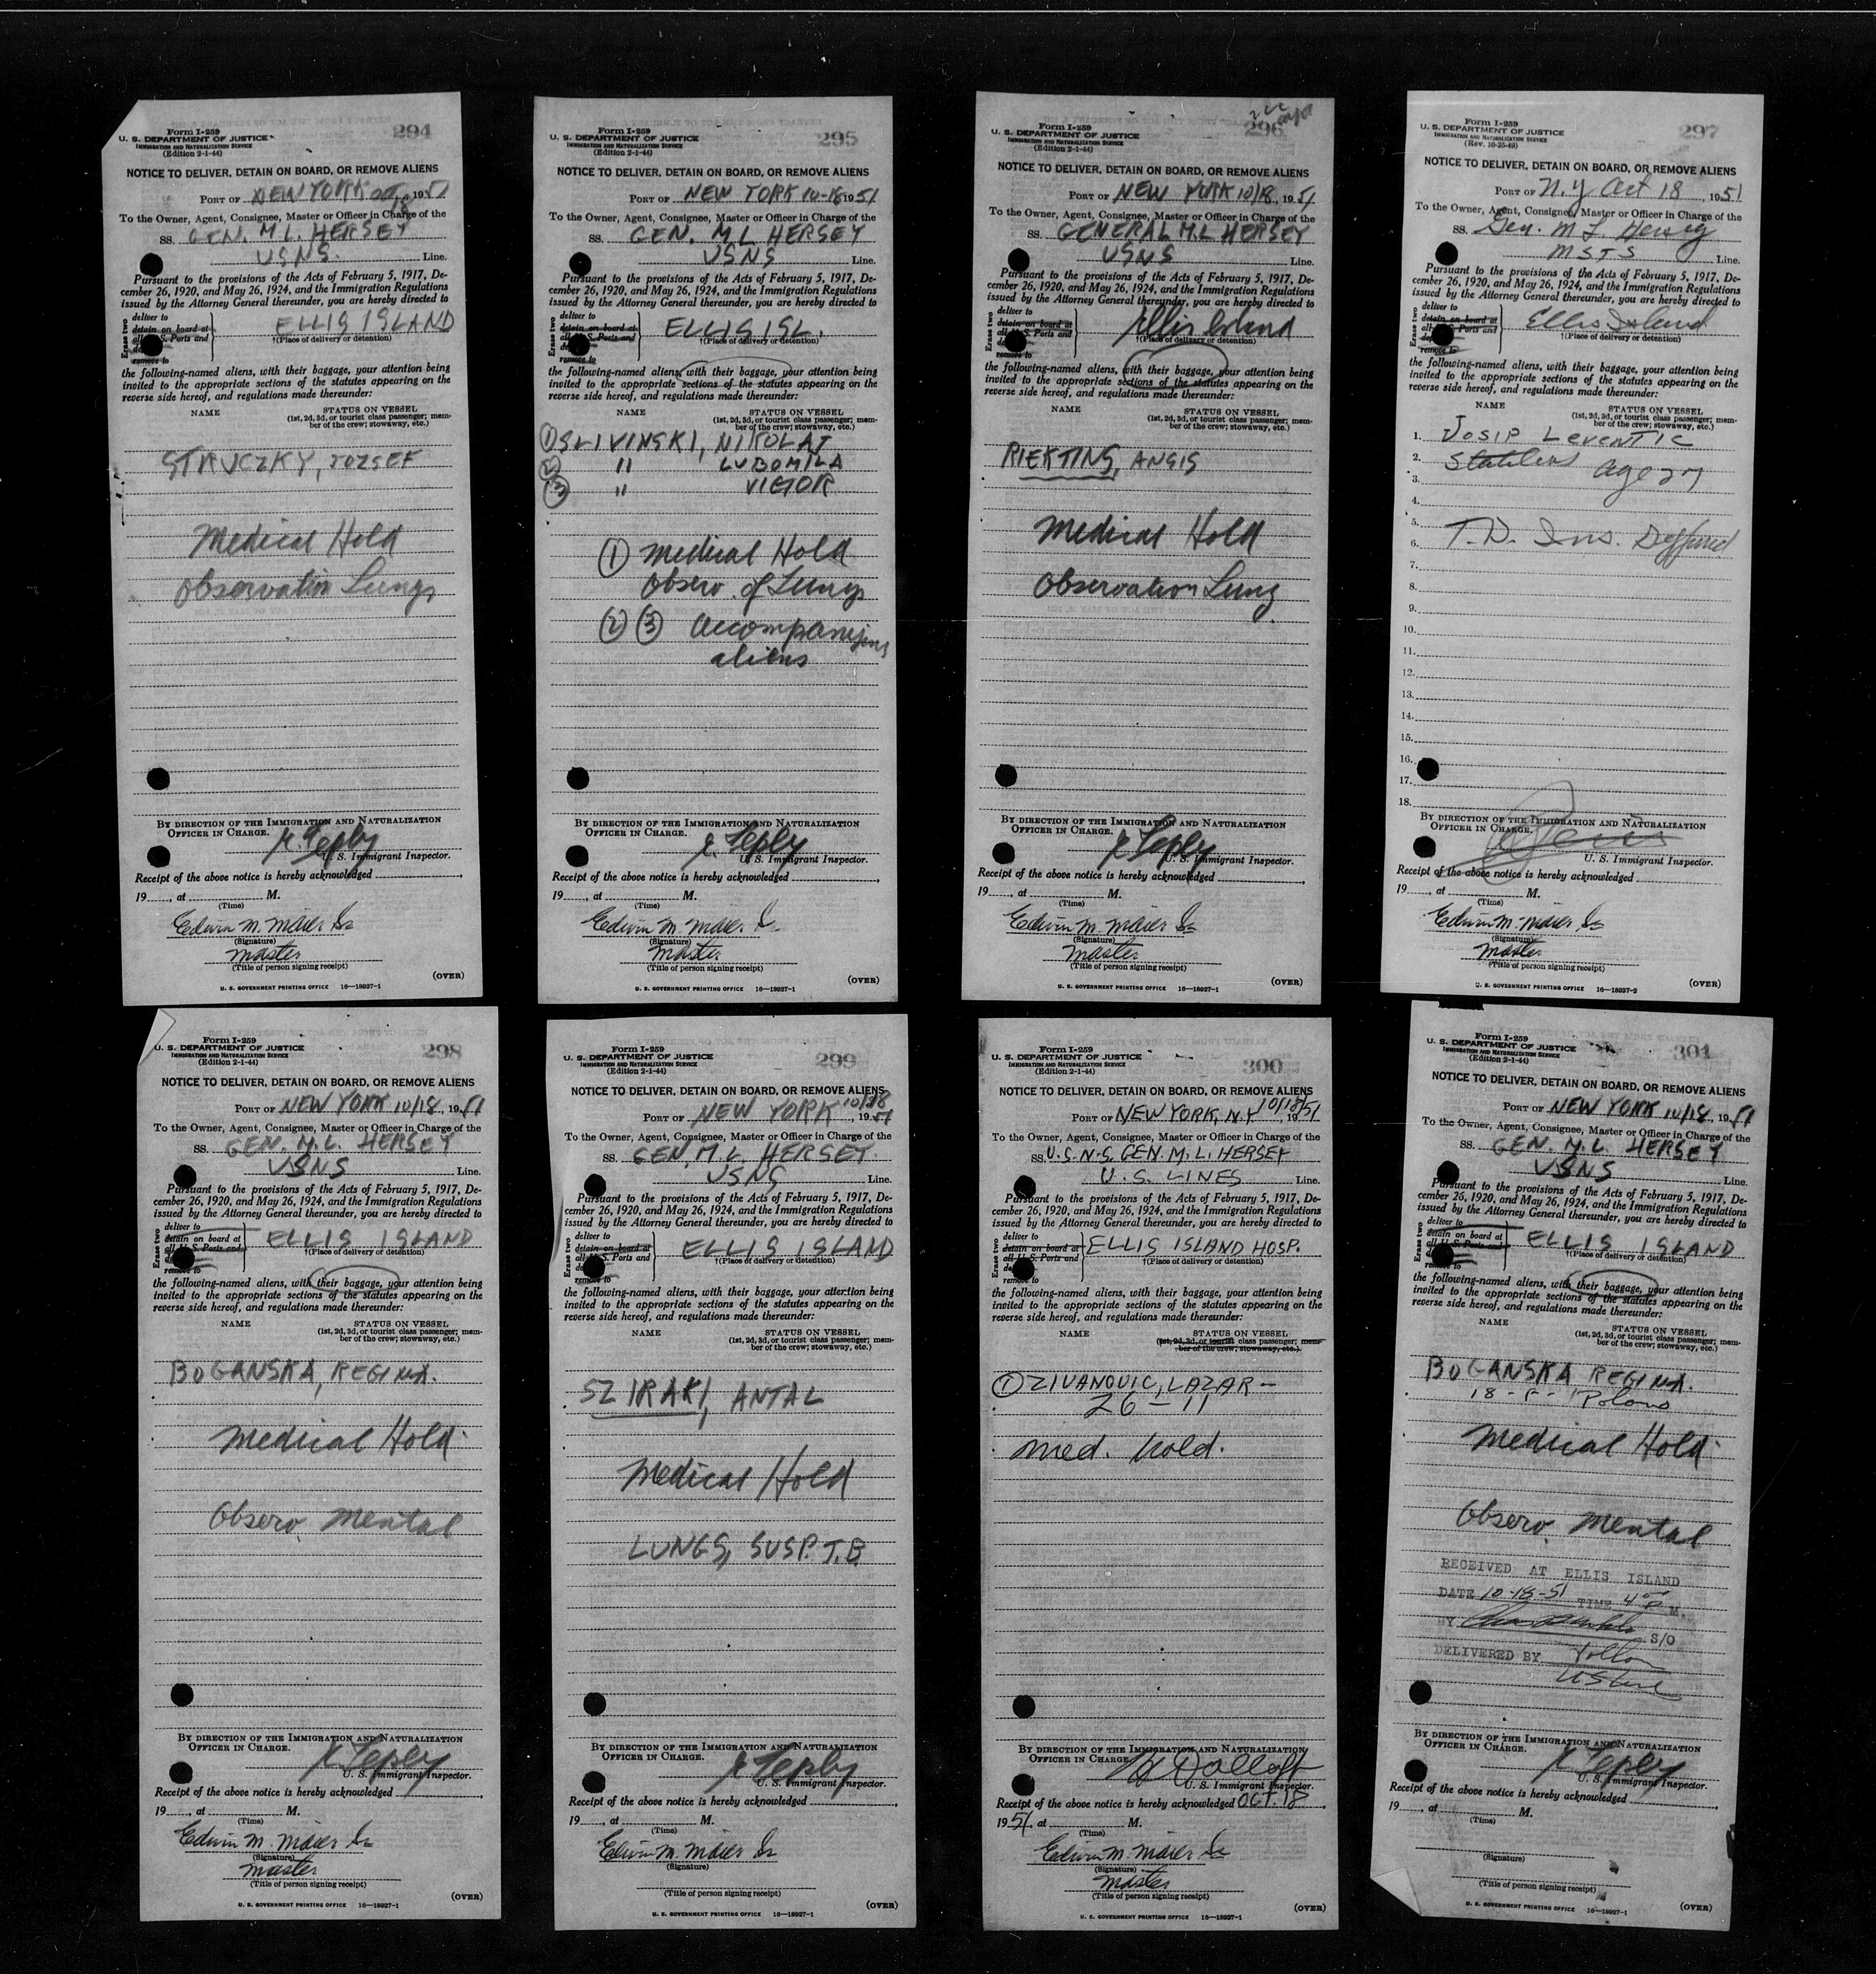 Form I-259
U. S. DEPARTMENT OF JUSTICE
IMMIGRATION AND NATURALIZATION SERVICE
(Edition 2-1-44)
294
NOTICE TO DELIVER, DETAIN ON BOARD, OR REMOVE ALIENS
PORT OF NEW YORK Oct 18 1951
To the Owner, Agent, Consignee, Master or Officer in Charge of the
SS. GEN. M L. HERSEY
USNS. Line.
Pursuant to the provisions of the Acts of February 5, 1917, De-
cember 26, 1920, and May 26, 1924, and the Immigration Regulations
issued by the Attorney General thereunder, you are hereby directed to
Erase two
deliver to
detain on board at
all U. S. Ports and
remove to
ELLIS ISLAND
†(Place of delivery or detention)
the following-named aliens, with their baggage, your attention being
invited to the appropriate sections of the statutes appearing on the
reverse side hereof, and regulations made thereunder:
NAME STATUS ON VESSEL
(1st, 2d, 3d, or tourist class passenger; mem-
ber of the crew; stowaway, etc.)
STRUCZKY, JOZSEF
Medical Hold
Observation Lungs
BY DIRECTION OF THE IMMIGRATION AND NATURALIZATION
OFFICER IN CHARGE.
U. S. Immigrant Inspector.
Receipt of the above notice is hereby acknowledged
19 , at M.
(Time)
Edwin M. Maier Sr
(Signature)
Master
(Title of person signing receipt)
(OVER)
U. S. GOVERNMENT PRINTING OFFICE 16—18927-1
Form I-259
U. S. DEPARTMENT OF JUSTICE
IMMIGRATION AND NATURALIZATION SERVICE
(Edition 2-1-44)
295
NOTICE TO DELIVER, DETAIN ON BOARD, OR REMOVE ALIENS
PORT OF NEW YORK 10-18 1951
To the Owner, Agent, Consignee, Master or Officer in Charge of the
SS. GEN. M L HERSEY
USNS Line.
Pursuant to the provisions of the Acts of February 5, 1917, De-
cember 26, 1920, and May 26, 1924, and the Immigration Regulations
issued by the Attorney General thereunder, you are hereby directed to
Erase two
deliver to
detain on board at
all U. S. Ports and
remove to
ELLIS ISL.
†(Place of delivery or detention)
the following-named aliens, with their baggage, your attention being
invited to the appropriate sections of the statutes appearing on the
reverse side hereof, and regulations made thereunder:
NAME STATUS ON VESSEL
(1st, 2d, 3d, or tourist class passenger; mem-
ber of the crew; stowaway, etc.)
① SLIVINSKI, NIKOLAJ
② " LUBOMILA
③ " VICTOR
① Medical Hold
Observ. of Lungs
② ③ accompanying
aliens
BY DIRECTION OF THE IMMIGRATION AND NATURALIZATION
OFFICER IN CHARGE.
U. S. Immigrant Inspector.
Receipt of the above notice is hereby acknowledged
19 , at M.
(Time)
Edwin M. Maier Sr
(Signature)
Master
(Title of person signing receipt)
(OVER)
U. S. GOVERNMENT PRINTING OFFICE 16—18927-1
Form I-259
U. S. DEPARTMENT OF JUSTICE
IMMIGRATION AND NATURALIZATION SERVICE
(Edition 2-1-44)
296
NOTICE TO DELIVER, DETAIN ON BOARD, OR REMOVE ALIENS
PORT OF NEW YORK 10/18, 1951
To the Owner, Agent, Consignee, Master or Officer in Charge of the
SS. GENERAL M.L HERSEY
USNS Line.
Pursuant to the provisions of the Acts of February 5, 1917, De-
cember 26, 1920, and May 26, 1924, and the Immigration Regulations
issued by the Attorney General thereunder, you are hereby directed to
Erase two
deliver to
detain on board at
all U. S. Ports and
remove to
Ellis Island
†(Place of delivery or detention)
the following-named aliens, with their baggage, your attention being
invited to the appropriate sections of the statutes appearing on the
reverse side hereof, and regulations made thereunder:
NAME STATUS ON VESSEL
(1st, 2d, 3d, or tourist class passenger; mem-
ber of the crew; stowaway, etc.)
RIEKTINS, ANSIS
Medical Hold
Observation Lung.
BY DIRECTION OF THE IMMIGRATION AND NATURALIZATION
OFFICER IN CHARGE.
U. S. Immigrant Inspector.
Receipt of the above notice is hereby acknowledged
19 , at M.
(Time)
Edwin M. Maier Sr
(Signature)
Master
(Title of person signing receipt)
(OVER)
U. S. GOVERNMENT PRINTING OFFICE 16—18927-1
Form I-259
U. S. DEPARTMENT OF JUSTICE
IMMIGRATION AND NATURALIZATION SERVICE
(Rev. 10-25-49)
297
NOTICE TO DELIVER, DETAIN ON BOARD, OR REMOVE ALIENS
PORT OF N.Y Oct 18, 1951
To the Owner, Agent, Consignee, Master or Officer in Charge of the
SS. Gen. M L Hersey
MSTS Line.
Pursuant to the provisions of the Acts of February 5, 1917, De-
cember 26, 1920, and May 26, 1924, and the Immigration Regulations
issued by the Attorney General thereunder, you are hereby directed to
Erase two
deliver to
detain on board at
all U. S. Ports and
remove to
Ellis Island
†(Place of delivery or detention)
the following-named aliens, with their baggage, your attention being
invited to the appropriate sections of the statutes appearing on the
reverse side hereof, and regulations made thereunder:
NAME STATUS ON VESSEL
(1st, 2d, 3d, or tourist class passenger; mem-
ber of the crew; stowaway, etc.)
1. JOSIP LEVENTIC
2. Stateless age 27
3.
4.
5.
6. T.D. Ins. Deffered
7.
8.
9.
10.
11.
12.
13.
14.
15.
16.
17.
18.
BY DIRECTION OF THE IMMIGRATION AND NATURALIZATION
OFFICER IN CHARGE.
U. S. Immigrant Inspector.
Receipt of the above notice is hereby acknowledged
19 , at M.
(Time)
Edwin M. Maier Sr
(Signature)
Master
(Title of person signing receipt)
(OVER)
U. S. GOVERNMENT PRINTING OFFICE 16—18927-2
Form I-259
U. S. DEPARTMENT OF JUSTICE
IMMIGRATION AND NATURALIZATION SERVICE
(Edition 2-1-44)
298
NOTICE TO DELIVER, DETAIN ON BOARD, OR REMOVE ALIENS
PORT OF NEW YORK 10/18, 1951
To the Owner, Agent, Consignee, Master or Officer in Charge of the
SS. GEN. M.L. HERSEY
USNS Line.
Pursuant to the provisions of the Acts of February 5, 1917, De-
cember 26, 1920, and May 26, 1924, and the Immigration Regulations
issued by the Attorney General thereunder, you are hereby directed to
Erase two
deliver to
detain on board at
all U. S. Ports and
remove to
ELLIS ISLAND
†(Place of delivery or detention)
the following-named aliens, with their baggage, your attention being
invited to the appropriate sections of the statutes appearing on the
reverse side hereof, and regulations made thereunder:
NAME STATUS ON VESSEL
(1st, 2d, 3d, or tourist class passenger; mem-
ber of the crew; stowaway, etc.)
BOGANSKA, REGINA.
Medical Hold
Observ. Mental
BY DIRECTION OF THE IMMIGRATION AND NATURALIZATION
OFFICER IN CHARGE.
U. S. Immigrant Inspector.
Receipt of the above notice is hereby acknowledged
19 , at M.
(Time)
Edwin M. Maier Sr
(Signature)
Master
(Title of person signing receipt)
(OVER)
U. S. GOVERNMENT PRINTING OFFICE 16—18927-1
Form I-259
U. S. DEPARTMENT OF JUSTICE
IMMIGRATION AND NATURALIZATION SERVICE
(Edition 2-1-44)
299
NOTICE TO DELIVER, DETAIN ON BOARD, OR REMOVE ALIENS
PORT OF NEW YORK 10/18, 1951
To the Owner, Agent, Consignee, Master or Officer in Charge of the
SS. GEN. M.L. HERSEY.
USNS Line.
Pursuant to the provisions of the Acts of February 5, 1917, De-
cember 26, 1920, and May 26, 1924, and the Immigration Regulations
issued by the Attorney General thereunder, you are hereby directed to
Erase two
deliver to
detain on board at
all U. S. Ports and
remove to
ELLIS ISLAND
†(Place of delivery or detention)
the following-named aliens, with their baggage, your attention being
invited to the appropriate sections of the statutes appearing on the
reverse side hereof, and regulations made thereunder:
NAME STATUS ON VESSEL
(1st, 2d, 3d, or tourist class passenger; mem-
ber of the crew; stowaway, etc.)
SZIRAKI, ANTAL
Medical Hold
LUNGS, SUSP. T.B.
BY DIRECTION OF THE IMMIGRATION AND NATURALIZATION
OFFICER IN CHARGE.
U. S. Immigrant Inspector.
Receipt of the above notice is hereby acknowledged
19 , at M.
(Time)
Edwin M. Maier Sr
(Signature)
(Title of person signing receipt)
(OVER)
U. S. GOVERNMENT PRINTING OFFICE 16—18927-1
Form I-259
U. S. DEPARTMENT OF JUSTICE
IMMIGRATION AND NATURALIZATION SERVICE
(Edition 2-1-44)
300
NOTICE TO DELIVER, DETAIN ON BOARD, OR REMOVE ALIENS
PORT OF NEW YORK, N.Y. 10/18/51 19
To the Owner, Agent, Consignee, Master or Officer in Charge of the
SS. U.S.N.S. GEN. M.L. HERSEY
U.S. LINES Line.
Pursuant to the provisions of the Acts of February 5, 1917, De-
cember 26, 1920, and May 26, 1924, and the Immigration Regulations
issued by the Attorney General thereunder, you are hereby directed to
Erase two
deliver to
detain on board at
all U. S. Ports and
remove to
ELLIS ISLAND HOSP.
†(Place of delivery or detention)
the following-named aliens, with their baggage, your attention being
invited to the appropriate sections of the statutes appearing on the
reverse side hereof, and regulations made thereunder:
NAME STATUS ON VESSEL
(1st, 2d, 3d, or tourist class passenger; mem-
ber of the crew; stowaway, etc.)
① ZIVANOVIC, LAZAR —
26 — 11
Med. hold.
BY DIRECTION OF THE IMMIGRATION AND NATURALIZATION
OFFICER IN CHARGE.
U. S. Immigrant Inspector.
Receipt of the above notice is hereby acknowledged OCT. 18,
1951, at M.
(Time)
Edwin M. Maier Sr
(Signature)
Master
(Title of person signing receipt)
(OVER)
U. S. GOVERNMENT PRINTING OFFICE 16—18927-1
Form I-259
U. S. DEPARTMENT OF JUSTICE
IMMIGRATION AND NATURALIZATION SERVICE
(Edition 2-1-44)
301
NOTICE TO DELIVER, DETAIN ON BOARD, OR REMOVE ALIENS
PORT OF NEW YORK 10/18, 1951
To the Owner, Agent, Consignee, Master or Officer in Charge of the
SS. GEN. M.L. HERSEY
USNS Line.
Pursuant to the provisions of the Acts of February 5, 1917, De-
cember 26, 1920, and May 26, 1924, and the Immigration Regulations
issued by the Attorney General thereunder, you are hereby directed to
Erase two
deliver to
detain on board at
all U. S. Ports and
remove to
ELLIS ISLAND
†(Place of delivery or detention)
the following-named aliens, with their baggage, your attention being
invited to the appropriate sections of the statutes appearing on the
reverse side hereof, and regulations made thereunder:
NAME STATUS ON VESSEL
(1st, 2d, 3d, or tourist class passenger; mem-
ber of the crew; stowaway, etc.)
BOGANSKA REGINA.
18 - F -
Medical Hold
Observ. Mental
RECEIVED AT ELLIS ISLAND
DATE 10-18-51 TIME 4 P M.
BY S/O
DELIVERED BY
BY DIRECTION OF THE IMMIGRATION AND NATURALIZATION
OFFICER IN CHARGE.
U. S. Immigrant Inspector.
Receipt of the above notice is hereby acknowledged
19 , at M.
(Time)
(Signature)
(Title of person signing receipt)
(OVER)
U. S. GOVERNMENT PRINTING OFFICE 16—18927-1